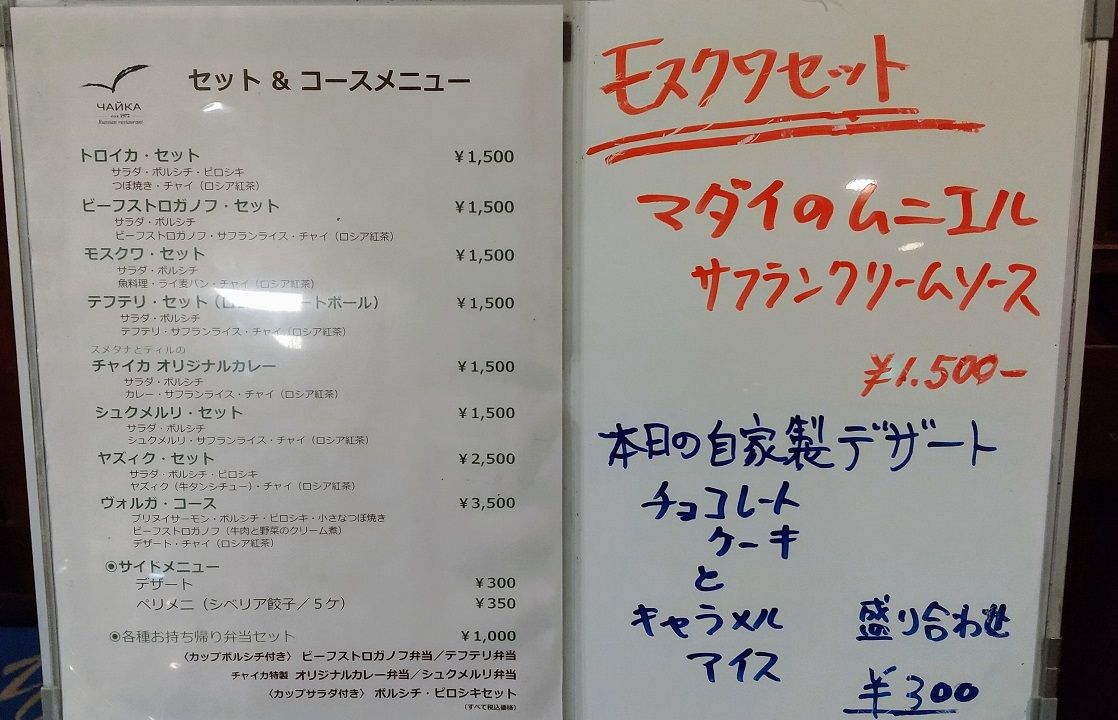 セット & コースメニュー
ЧАЙКА
since 1972
Russian restaurant
トロイカ・セット ￥1,500
サラダ・ボルシチ・ピロシキ
つぼ焼き・チャイ（ロシア紅茶）
ビーフストロガノフ・セット ￥1,500
サラダ・ボルシチ
ビーフストロガノフ・サフランライス・チャイ（ロシア紅茶）
モスクワ・セット ￥1,500
サラダ・ボルシチ
魚料理・ライ麦パン・チャイ（ロシア紅茶）
テフテリ・セット（ロ ートボール） ￥1,500
サラダ・ボルシチ
テフテリ・サフランライス・チャイ（ロシア紅茶）
スメタナとディルの
チャイカ オリジナルカレー ￥1,500
サラダ・ボルシチ
カレー・サフランライス・チャイ（ロシア紅茶）
シュクメルリ・セット ￥1,500
サラダ・ボルシチ
シュクメルリ・サフランライス・チャイ（ロシア紅茶）
ヤズィク・セット ￥2,500
サラダ・ボルシチ・ピロシキ
ヤズィク（牛タンシチュー）・チャイ（ロシア紅茶）
ヴォルガ・コース ￥3,500
ブリヌイサーモン・ボルシチ・ピロシキ・小さなつぼ焼き
ビーフストロガノフ（牛肉と野菜のクリーム煮）
デザート・チャイ（ロシア紅茶）
◉サイドメニュー
デザート ￥300
ペリメニ（シベリア餃子／５ケ） ￥350
◉各種お持ち帰り弁当セット ￥1,000
〈カップボルシチ付き〉 ビーフストロガノフ弁当／テフテリ弁当
チャイカ特製 オリジナルカレー弁当／シュクメルリ弁当
〈カップサラダ付き〉 ボルシチ・ピロシキセット
（すべて税込価格）
モスクワセット
マダイのムニエル
サフランクリームソース
￥1.500-
本日の自家製デザート
チョコレート
ケーキ
と
キャラメル 盛り合わせ
アイス
￥300